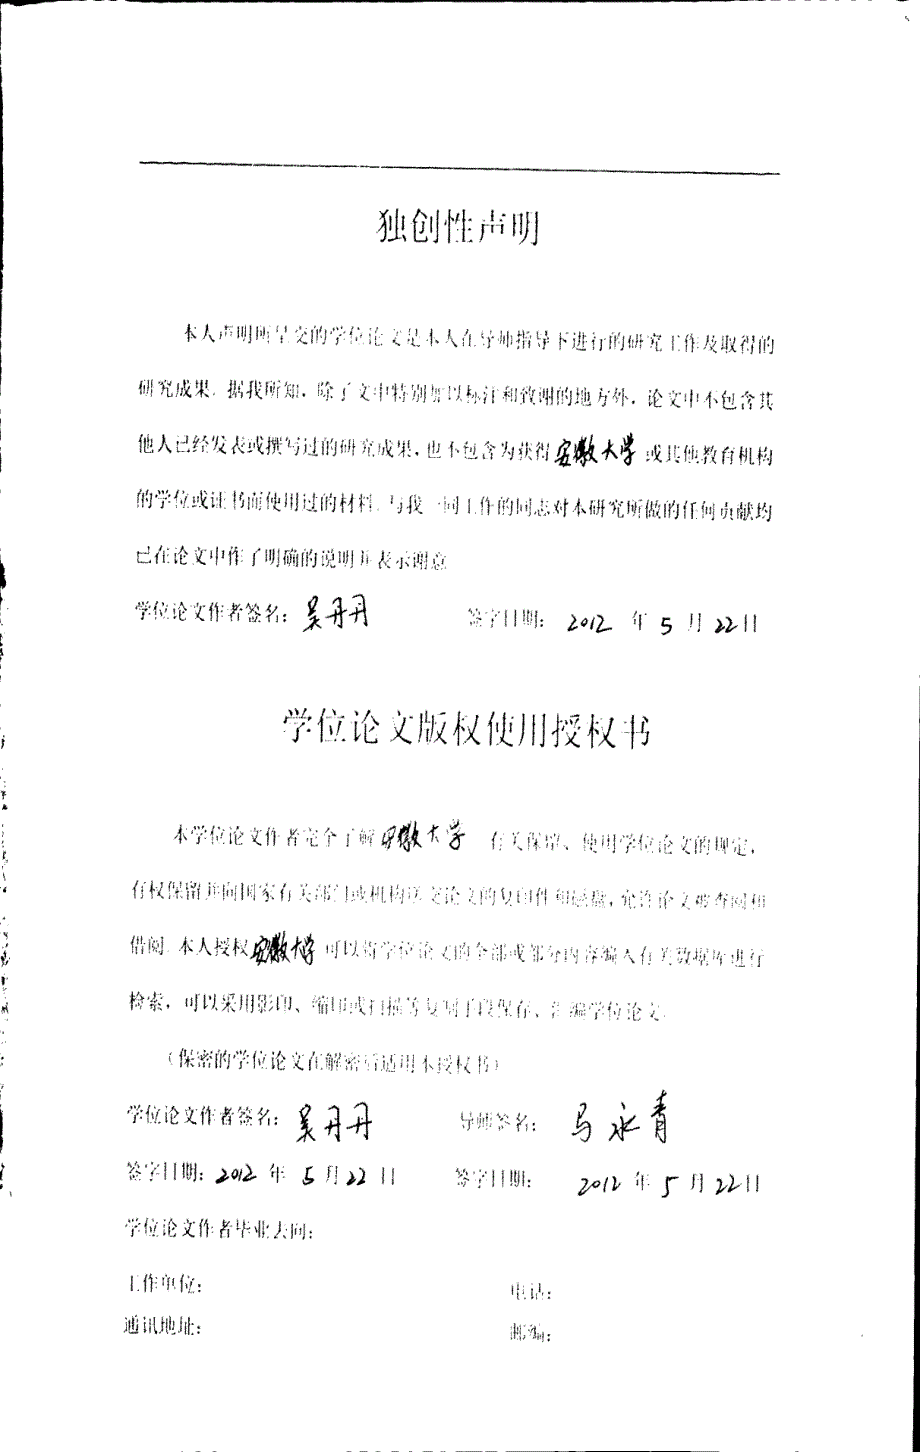 独创性声明
本人声明所呈交的学位论文是本人在导师指导下进行的研究工作及取得的
研究成果。据我所知，除了文中特别加以标注和致谢的地方外，论文中不包含其
他人已经发表或撰写过的研究成果，也不包含为获得安徽大学或其他教育机构
的学位或证书而使用过的材料。与我一同工作的同志对本研究所做的任何贡献均
已在论文中作了明确的说明并表示谢意
学位论文作者签名：吴丹丹 签字日期：2012 年 5 月 22日
学位论文版权使用授权书
本学位论文作者完全了解安徽大学 有关保留、使用学位论文的规定，
有权保留并向国家有关部门或机构送交论文的复印件和磁盘，允许论文被查阅和
借阅。本人授权安徽大学可以将学位论文的全部或部分内容编入有关数据库进行
检索，可以采用影印、缩印或扫描等复制手段保存、汇编学位论文。
（保密的学位论文在解密后适用本授权书）
学位论文作者签名：吴丹丹 导师签名：马永青
签字日期：2012 年 5 月 22 日 签字日期：2012 年 5 月 22日
学位论文作者毕业去向：
工作单位： 电话：
通讯地址： 邮编：